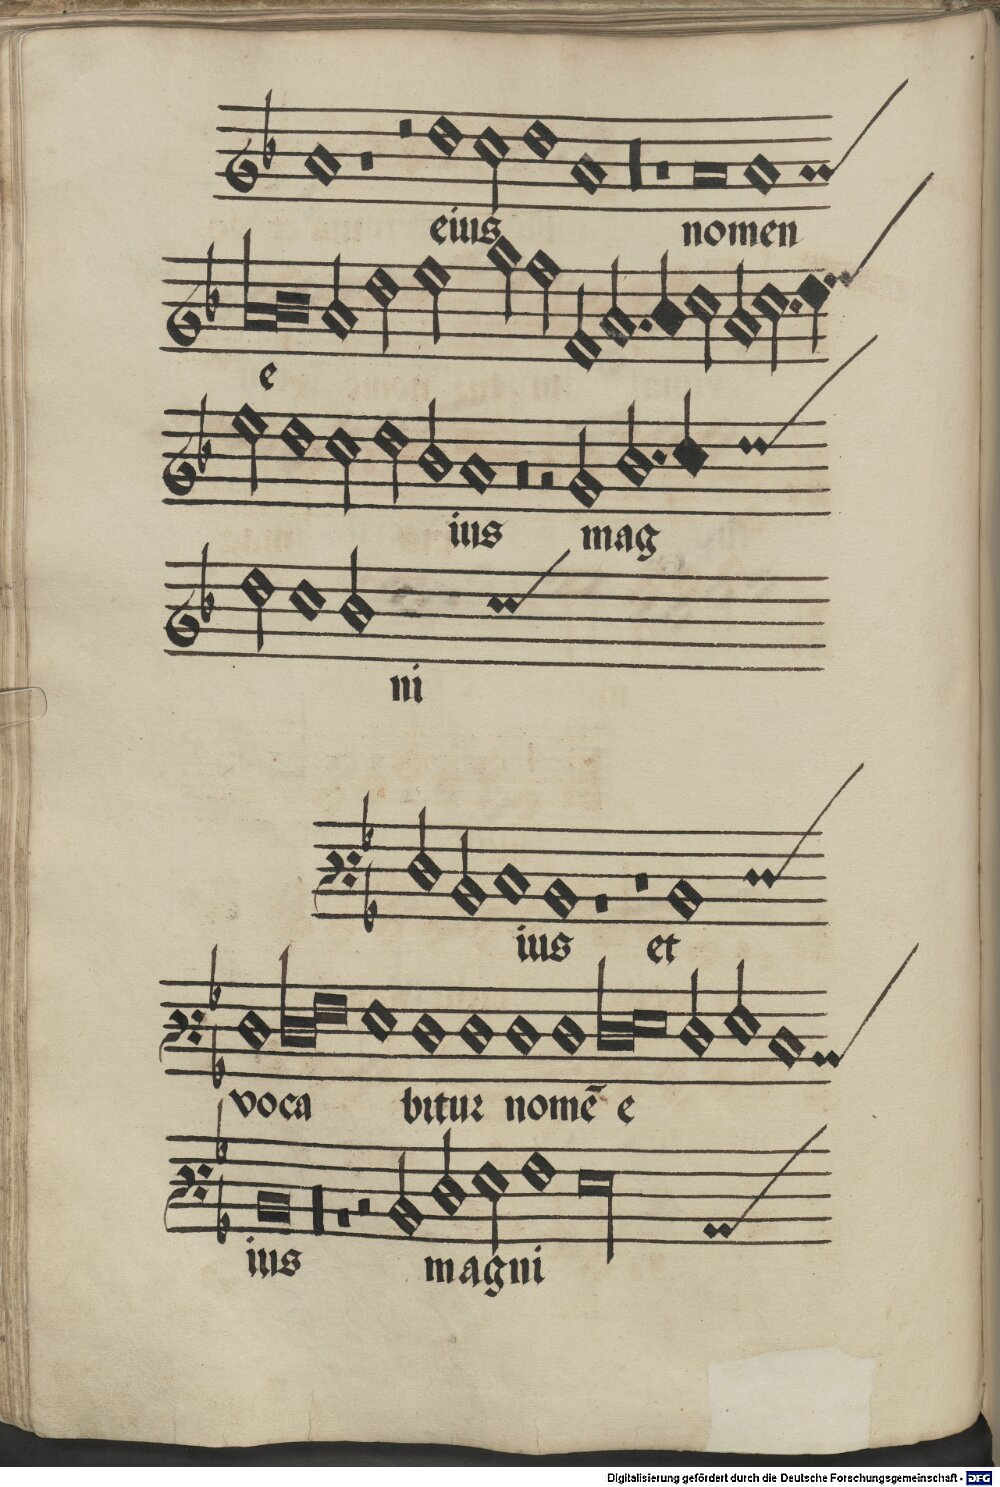 eius nomen
e
ius mag
ni
ius et
voca bitur nomē e
ius magni
Digitalisierung gefördert durch die Deutsche Forschungsgemeinschaft - DFG